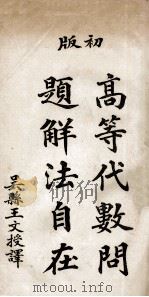 初版
高等代數問
題解法自在
吳縣王文授譯
http://mou-tu.info